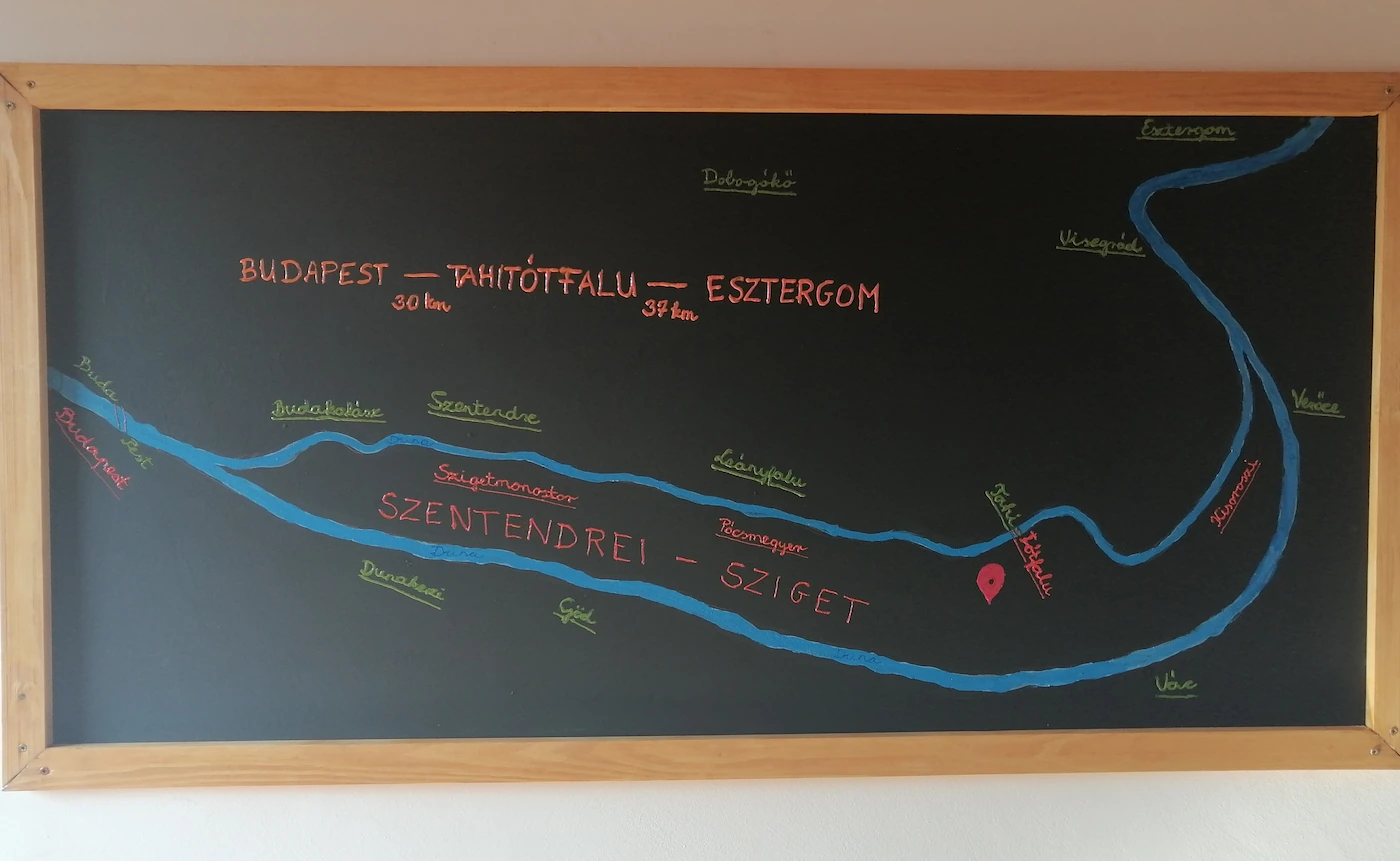 Esztergom
Dobogókő
Visegrád
BUDAPEST — TAHITÓTFALU — ESZTERGOM
30 km
37 km
Buda
Pest
Budapest
Budakalász
Szentendre
Verőce
Duna
Leányfalu
Szigetmonostor
Kisoroszi
Pócsmegyer
Tahi
Tótfalu
SZENTENDREI - SZIGET
Duna
Dunakeszi
Göd
Duna
Vác